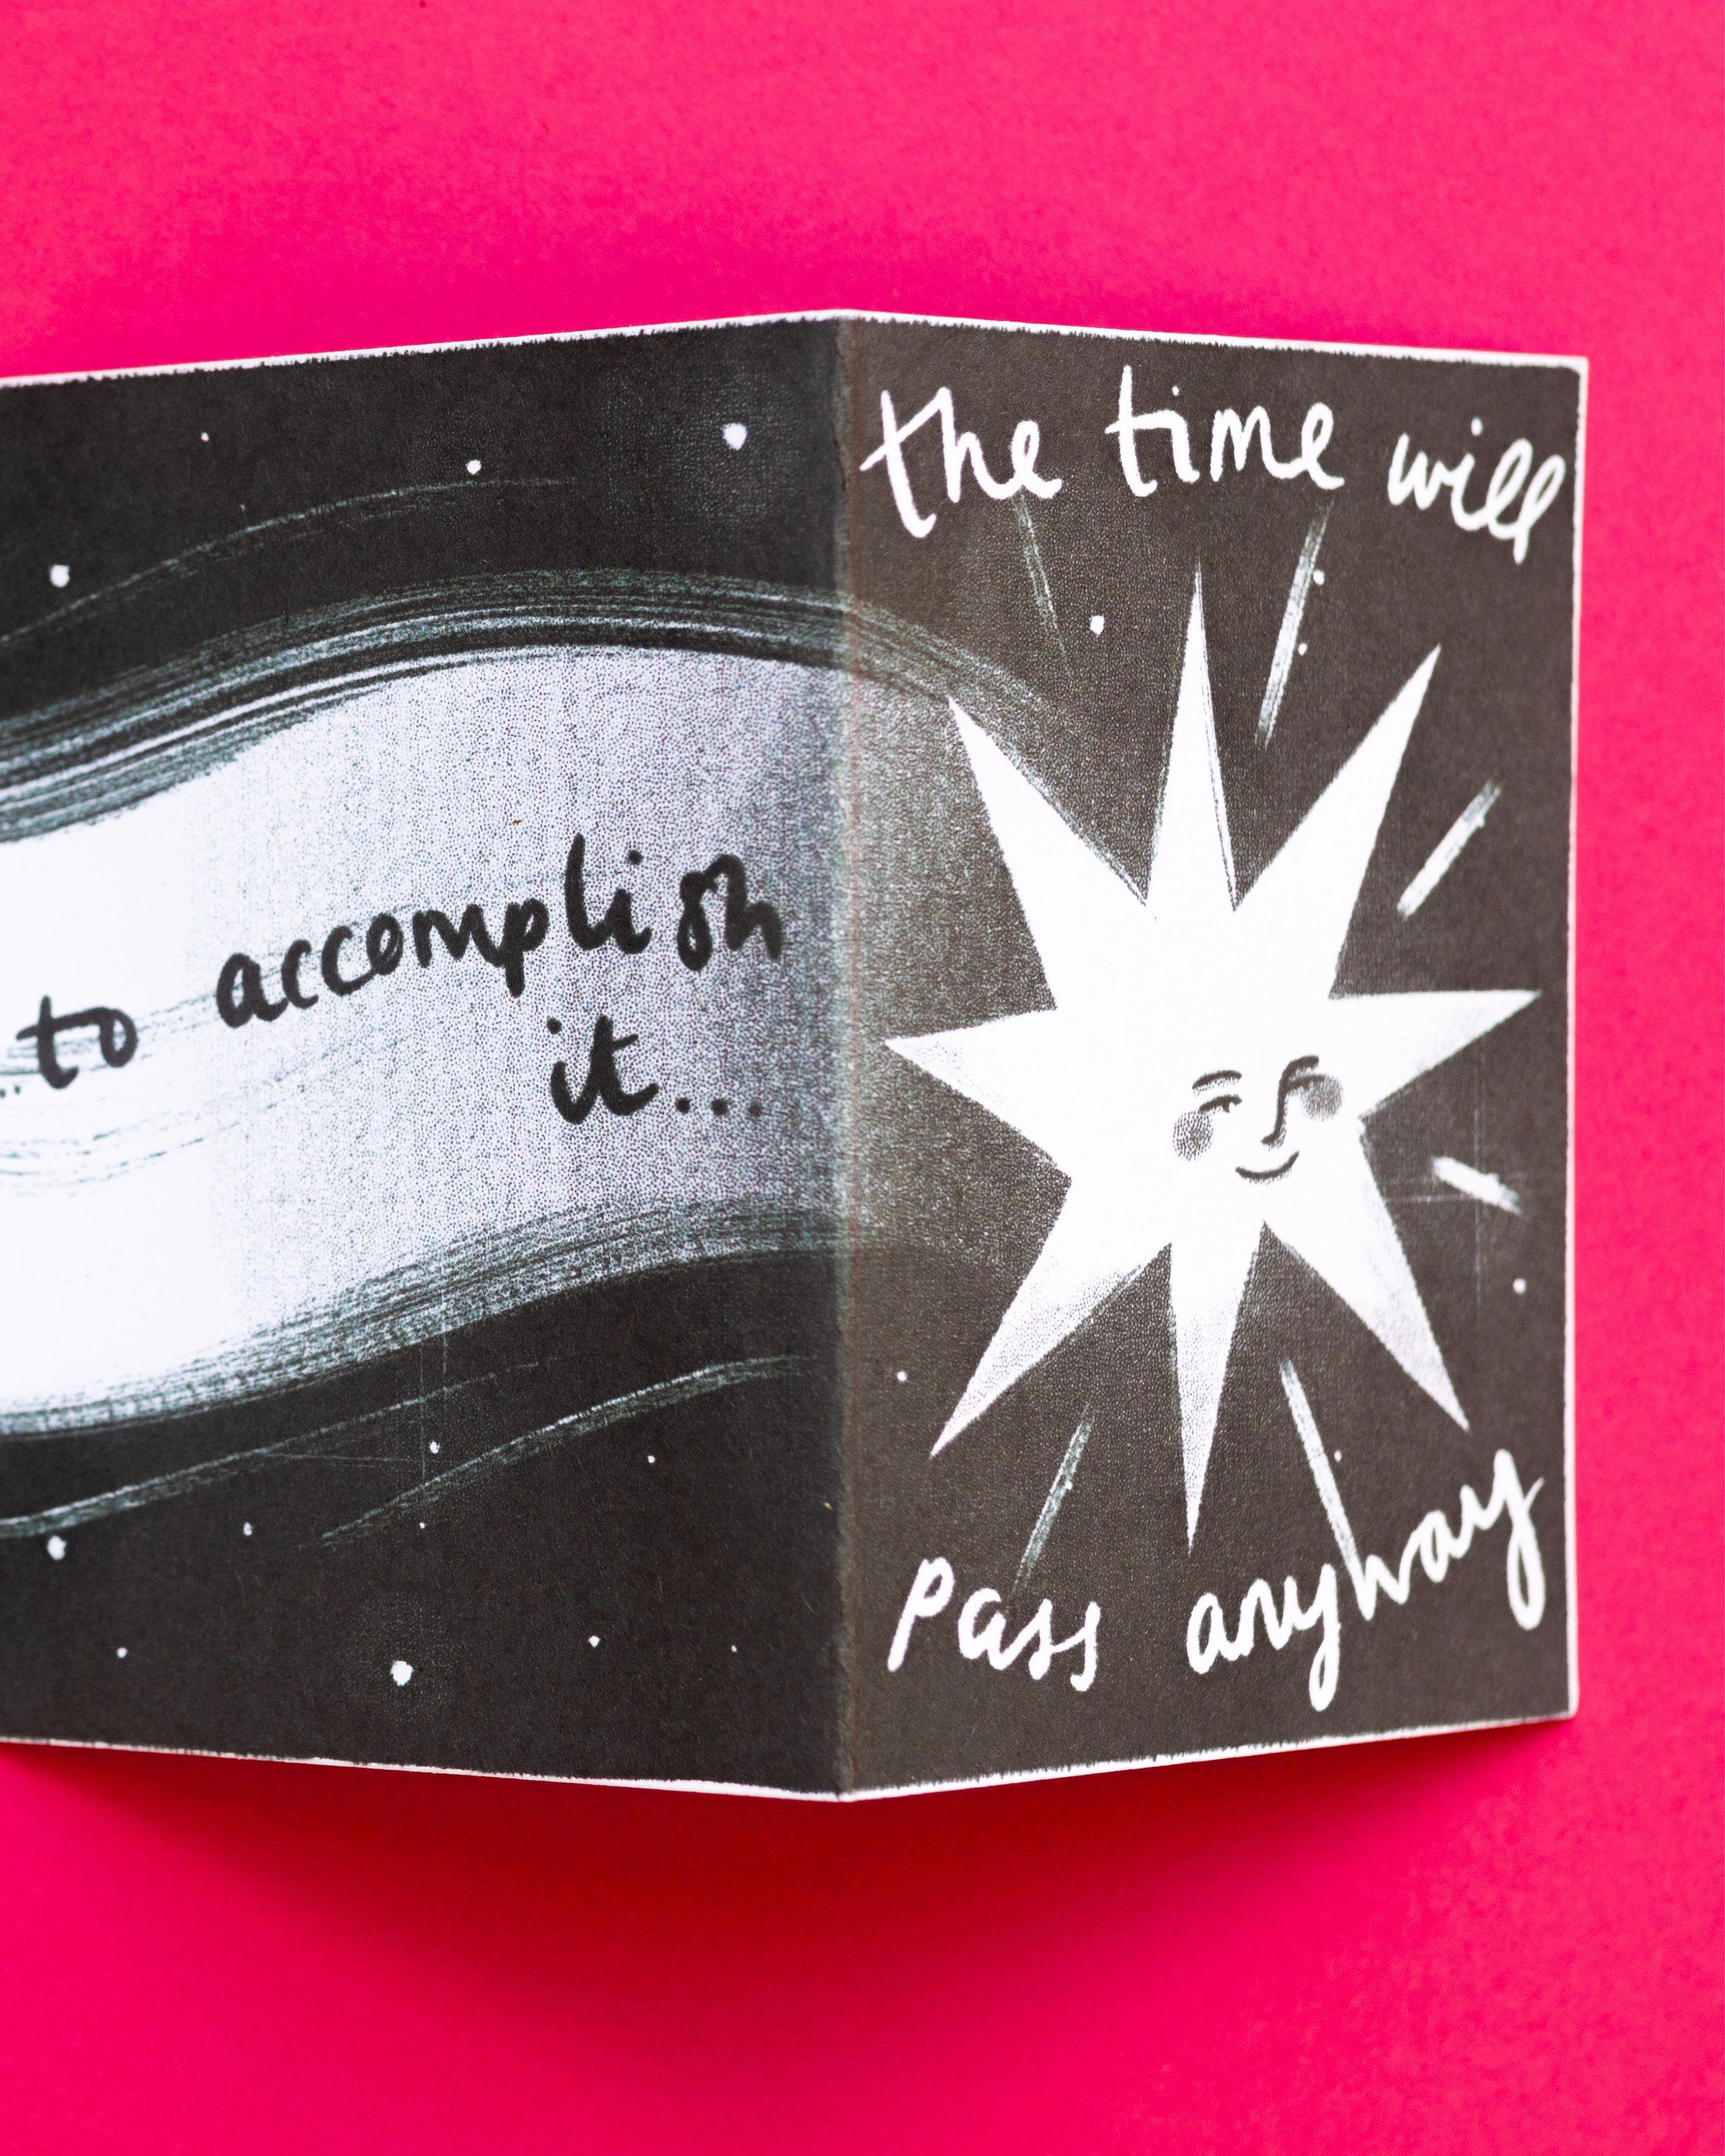 ...to accomplish
it...
the time will
pass anyway